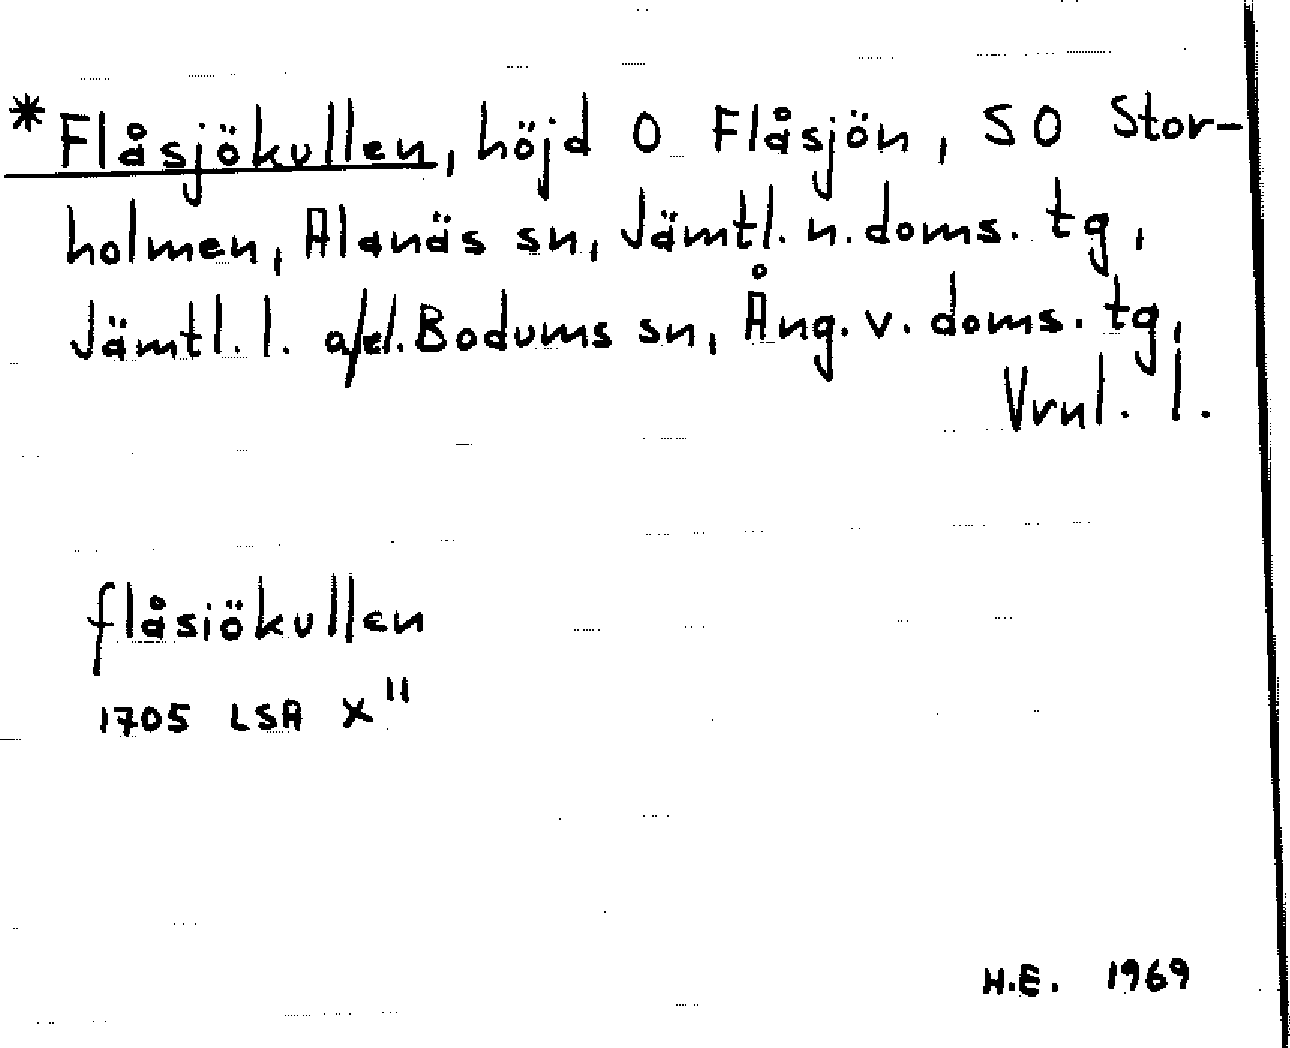 * Flåsjökullen, höjd O Flåsjön, SO Stor-
holmen, Alanäs sn, Jämtl. n. doms. tg,
Jämtl. l. o/el. Bodums sn, Ång. v. doms. tg,
Vrnl. l.
flåsiökullen
1705 LSA X"
H.E. 1969